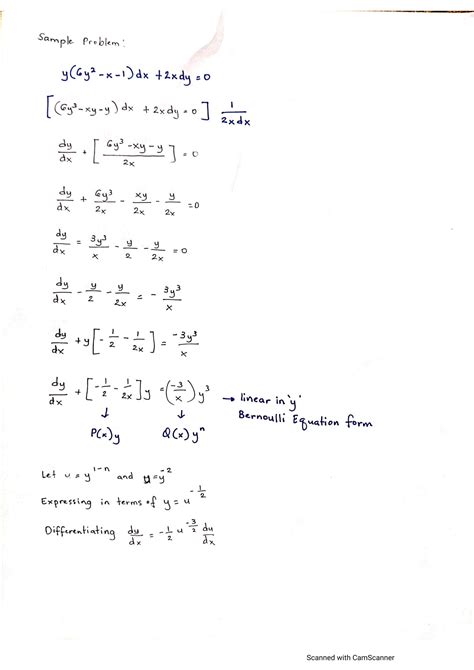 Sample Problem:
y(6y² - x - 1) dx + 2x dy = 0
[(6y³ - xy - y) dx + 2x dy = 0] 1/(2x dx)
dy/dx + [(6y³ - xy - y)/2x] = 0
dy/dx + 6y³/2x - xy/2x - y/2x = 0
dy/dx = 3y³/x - y/2 - y/2x = 0
dy/dx - y/2 - y/2x = - 3y³/x
dy/dx + y[- 1/2 - 1/2x] = -3y³/x
dy/dx + [- 1/2 - 1/2x] y = (-3/x) y³ → linear in 'y'
Bernoulli Equation form
↓ ↓
P(x)y Q(x)yⁿ
Let u = y^(1-n) and u = y^(-2)
Expressing in terms of y = u^(-1/2)
Differentiating dy/dx = - 1/2 u^(-3/2) du/dx
Scanned with CamScanner